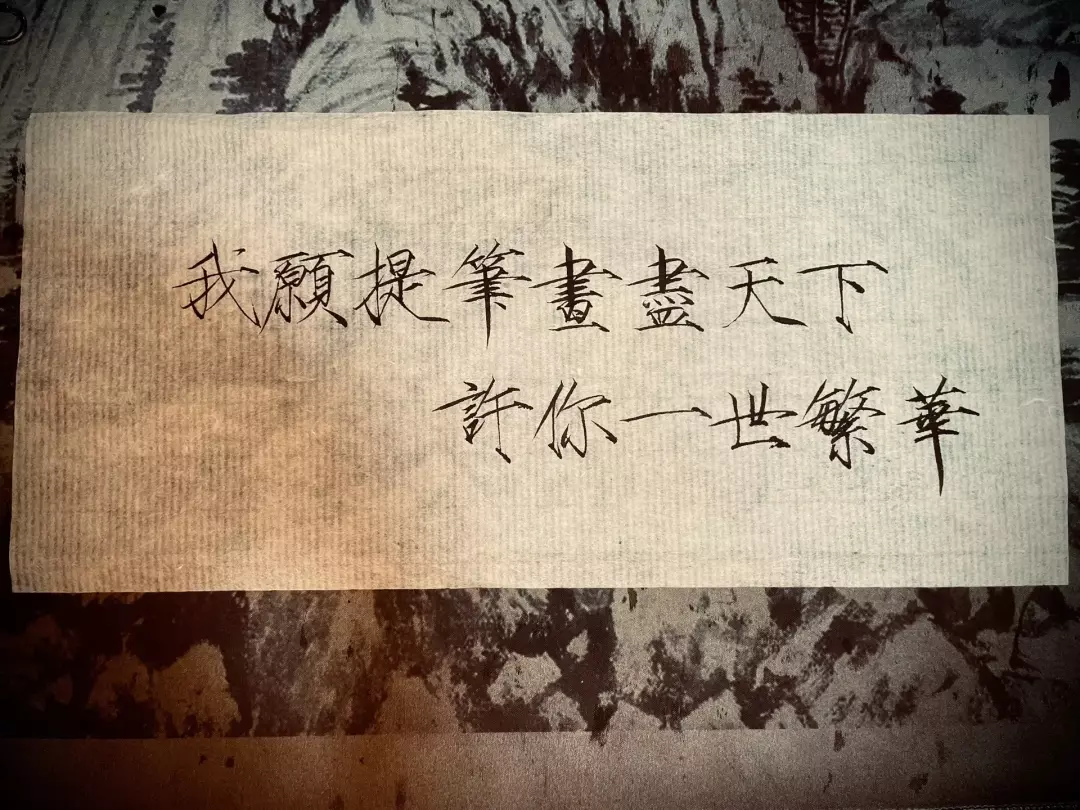 我願提筆畫盡天下
許你一世繁華